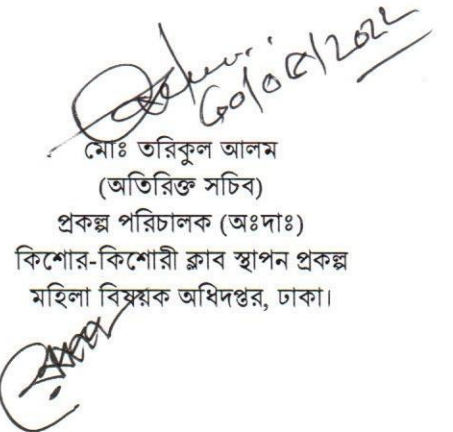 ৩০/০৫/২০২২
মোঃ তরিকুল আলম
(অতিরিক্ত সচিব)
প্রকল্প পরিচালক (অঃদাঃ)
কিশোর-কিশোরী ক্লাব স্থাপন প্রকল্প
মহিলা বিষয়ক অধিদপ্তর, ঢাকা।